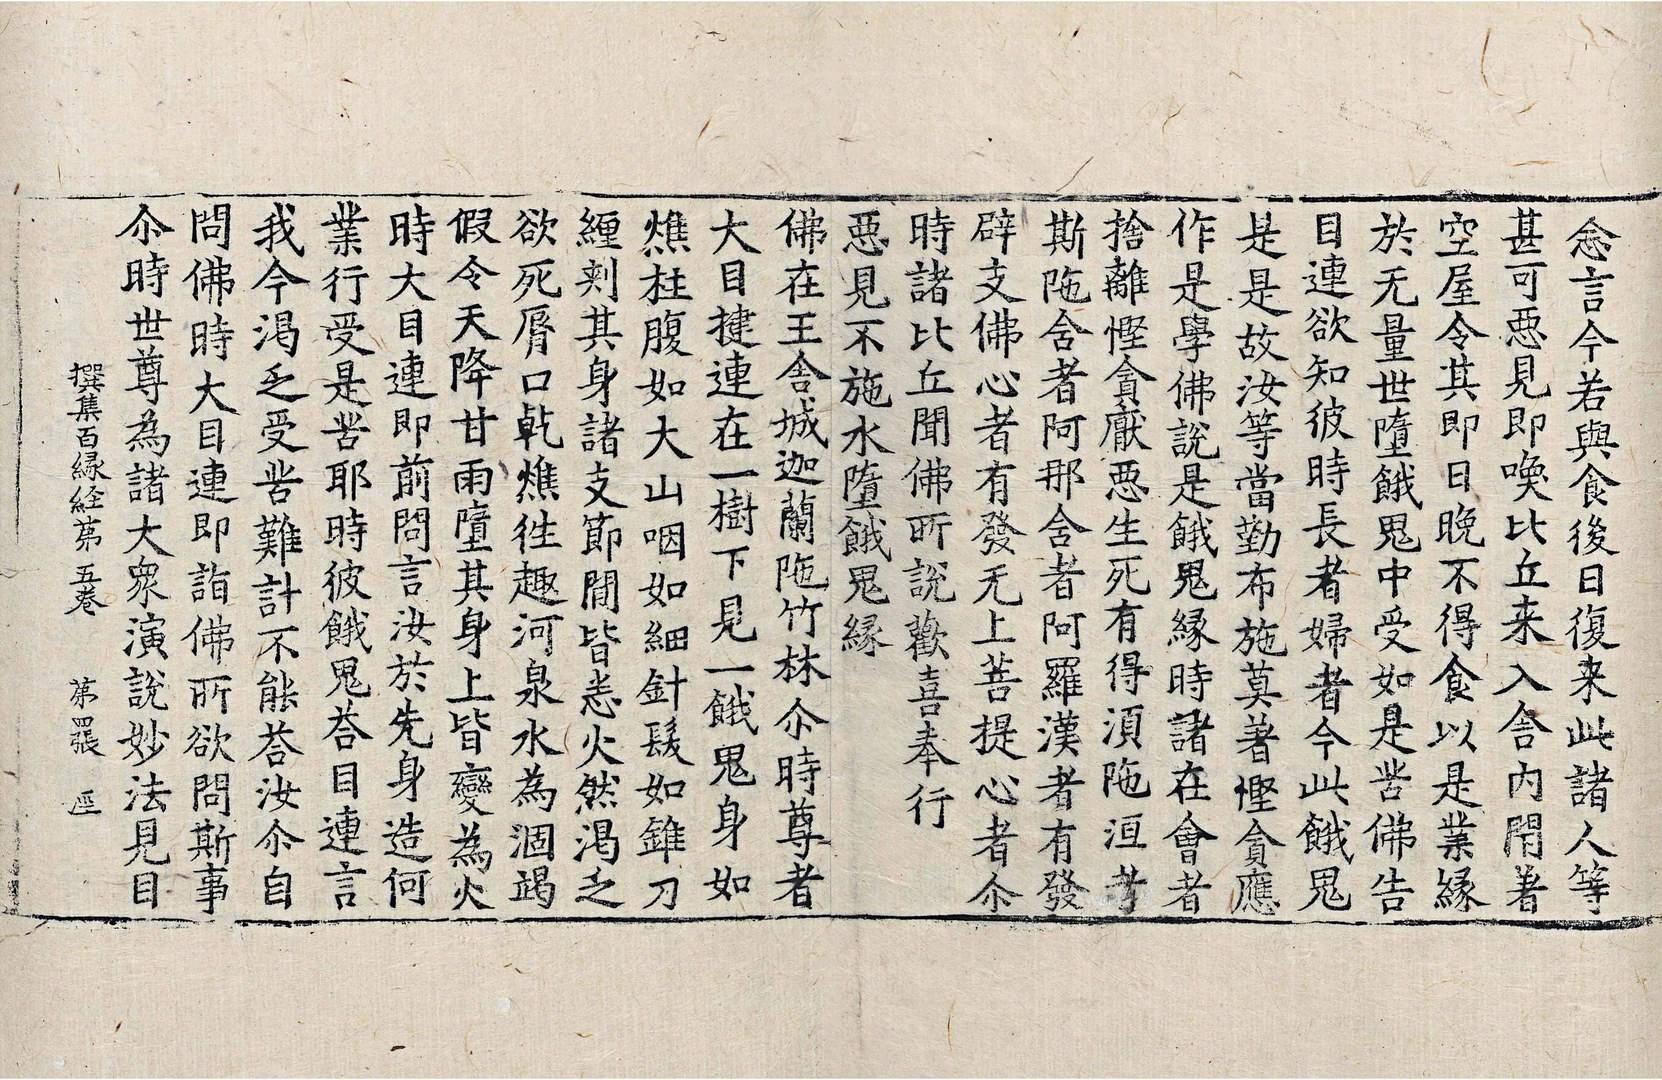 念言今若與食後日復来此諸人等
甚可惡見即喚比丘来入舍内閇著
空屋令其即日晚不得食以是業縁
於无量世墮餓鬼中受如是苦佛告
目連欲知彼時長者婦者今此餓鬼
是是故汝等當勤布施莫著慳貪應
作是學佛說是餓鬼縁時諸在會者
捨離慳貪猒惡生死有得湏陁洹者
斯陁含者阿那含者阿羅漢者有發
辟支佛心者有發无上菩提心者尒
時諸比丘聞佛所說歡喜奉行
惡見不施水墮餓鬼縁
佛在王舍城迦蘭陁竹林尒時尊者
大目揵連在一樹下見一餓鬼身如
燋柱腹如大山咽如細針髮如錐刀
纏刾其身諸支節間皆悉火然渴乏
欲死脣口乹燋徃趣河泉水為涸竭
假令天降甘雨墮其身上皆變為火
時大目連即前問言汝於先身造何
業行受是苦耶時彼餓鬼荅目連言
我今渴乏受苦難計不能荅汝尒自
問佛時大目連即詣佛所欲問斯事
尒時世尊為諸大衆演說妙法見目
撰集百縁経第五巻 第四張 逕